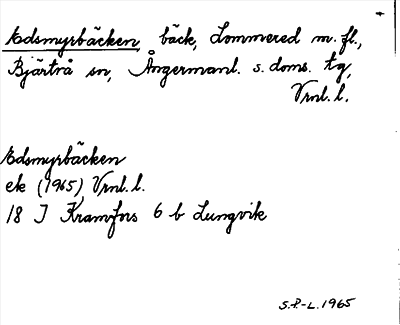 Edsmyrbäcken bäck, Lommered m. fl.,
Bjärtrå sn, Ångermanl. s. doms. tg,
Vrnl. l.
Edsmyrbäcken
ek (1965) Vrnl. l.
18 J Kramfors 6 b Lungvik
S.P-L. 1965